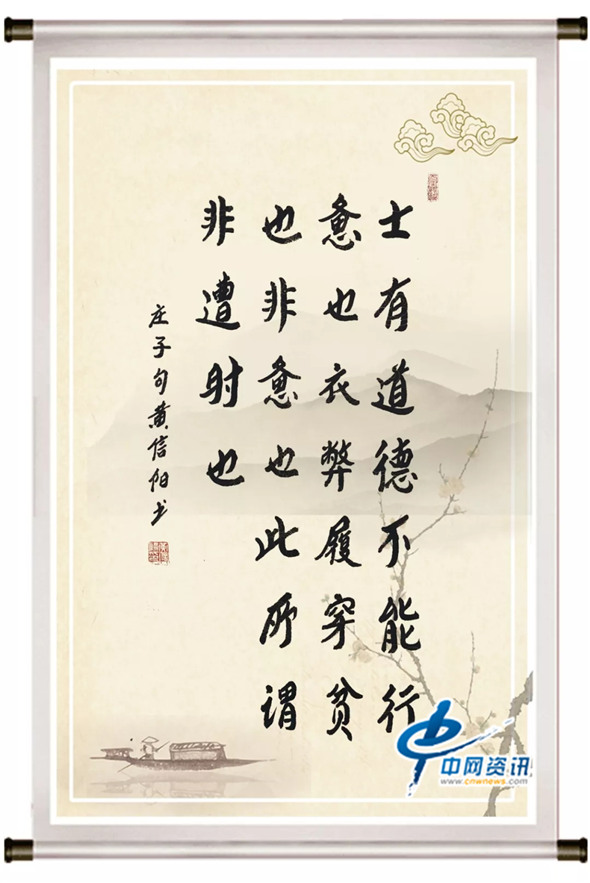 士有道德不能行
惫也衣弊履穿贫
也非惫也此所谓
非遭时也
庄子句黄信阳书
中网资讯
www.cnwnews.com